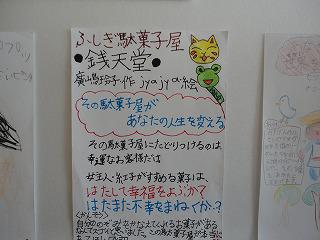 ふしぎ駄菓子屋
●銭天堂●
廣嶋玲子・作 jyajya・絵
その駄菓子屋が
あなたの人生を変える
その駄菓子屋にたどりつけるのは
幸運なお客様だけ
女主人・紅子がすすめる菓子は、
はたして幸福をよぶか?
はたまた不幸をまねくか・・?
自分の